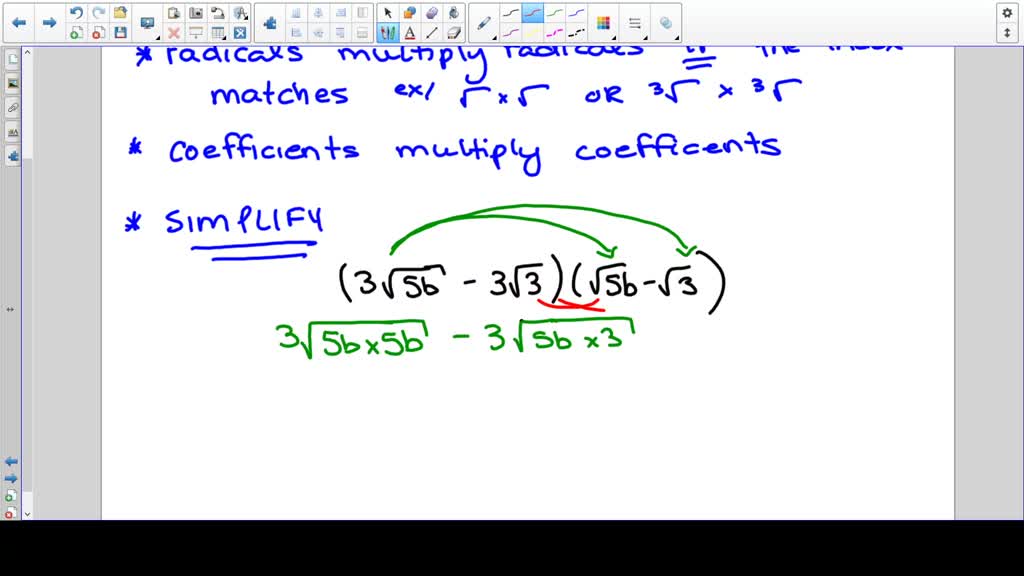 * radicals multiply radicals if the index
matches ex/ √ x √ OR ³√ x ³√
* coefficients multiply coefficents
* SIMPLIFY
(3√5b - 3√3)(√5b - √3)
3√5b x 5b - 3√5b x 3